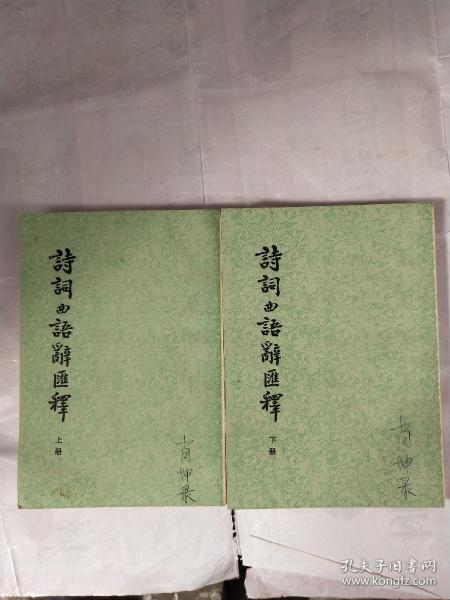 詩詞曲語辭匯釋
上册
詩詞曲語辭匯釋
下册
坤录
坤录
孔夫子旧书网
www.kongfz.com